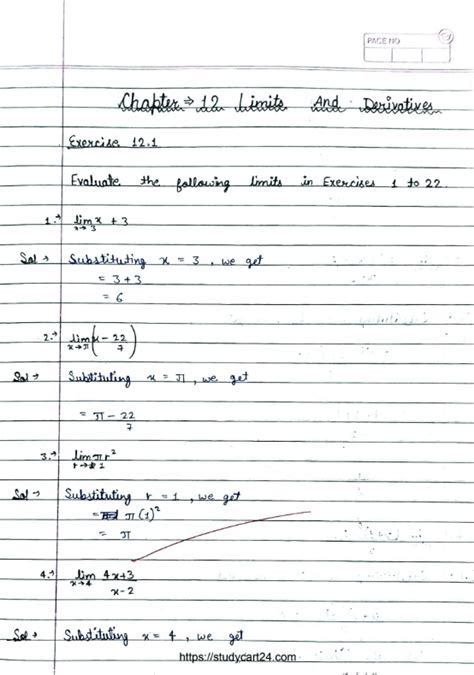 PAGE NO
Chapter ⇒ 12 Limits And Derivatives
Exercise 12.1
Evaluate the following limits in Exercises 1 to 22.
1.→ lim x→3 x + 3
Sol → Substituting x = 3, we get
= 3+3
= 6
2.→ lim x→π (x - 22/7)
Sol → Substituting x = π, we get
= π - 22/7
3.→ lim r→1 πr²
Sol → Substituting r = 1, we get
= π(1)²
= π
4.→ lim x→4 4x+3/x-2
Sol → Substituting x = 4, we get
https://studycart24.com